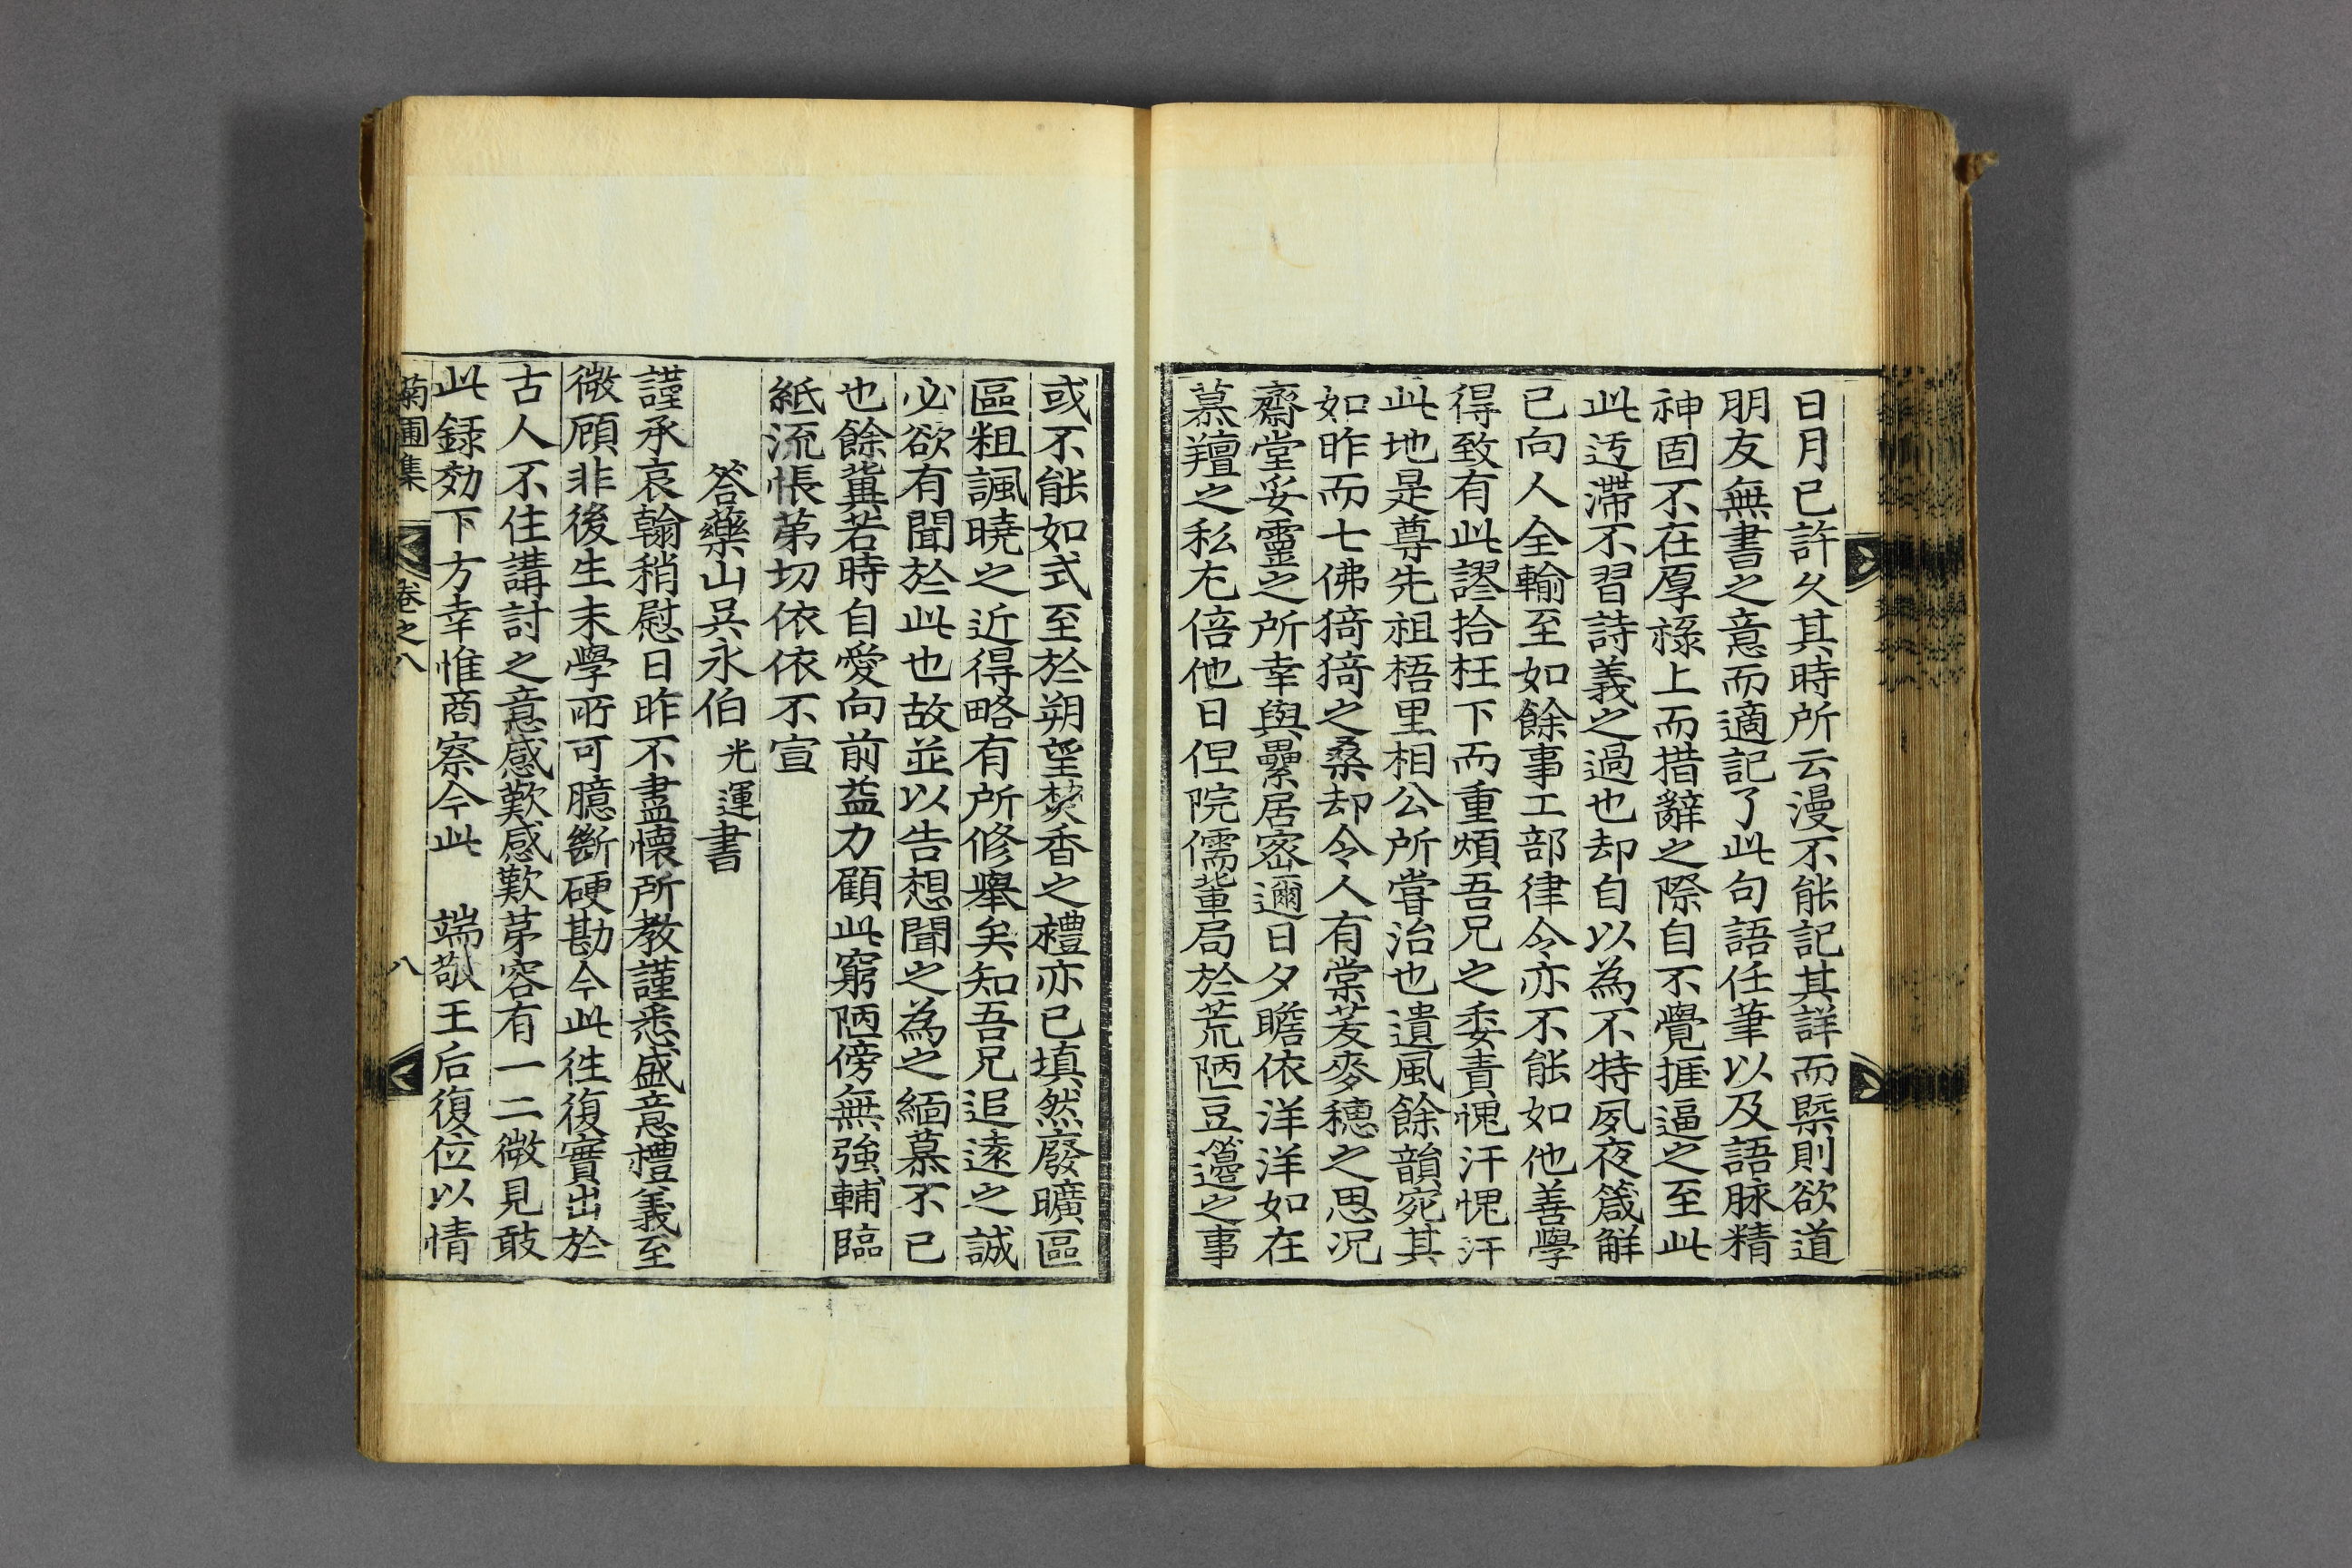 日月已許久其時所云漫不能記其詳而槩則欲道
朋友無書之意而適記了此句語任筆以及語脉精
神固不在厚祿上而措辭之際自不覺捱逼之至此
此迃滯不習詩義之過也却自以為不特夙夜箴觧
已向人全輸至如餘事工部律令亦不能如他善學
得致有此謬拾枉下而重煩吾兄之委責愧汗愧汗
此地是尊先祖梧里相公所甞治也遺風餘韻宛其
如昨而七佛猗猗之桑却令人有棠茇麥穗之思况
齋堂妥靈之所幸與纍居密邇日夕瞻依洋洋如在
慕羶之私尤倍他日但院儒軰局於荒陋豆籩之事
或不能如式至於朔望焚香之禮亦已塡然廢曠區
區粗諷曉之近得略有所修擧矣知吾兄追遠之誠
必欲有聞於此也故並以告想聞之為之緬慕不已
也餘兾若時自愛向前益力顧此窮陋傍無強輔臨
紙流悵第切依依不宣
答藥山吳永伯光運書
謹承哀翰稍慰日昨不盡懷所教謹悉盛意禮義至
微顧非後生末學所可臆斷硬勘今此徃復實出於
古人不住講討之意感歎感歎苐容有一二微見敢
此錄効下方幸惟商察今此 端敬王后復位以情
菊圃集 卷之八 八